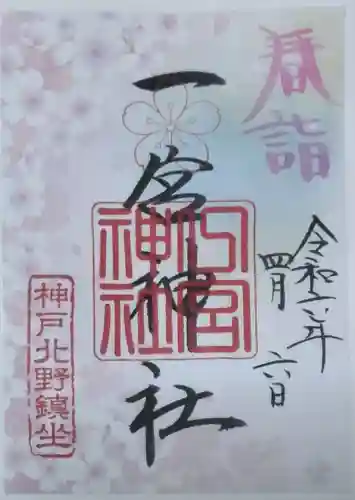 春詣
令和六年
四月六日
一宮神社
一宮神社
神戸北野鎮坐